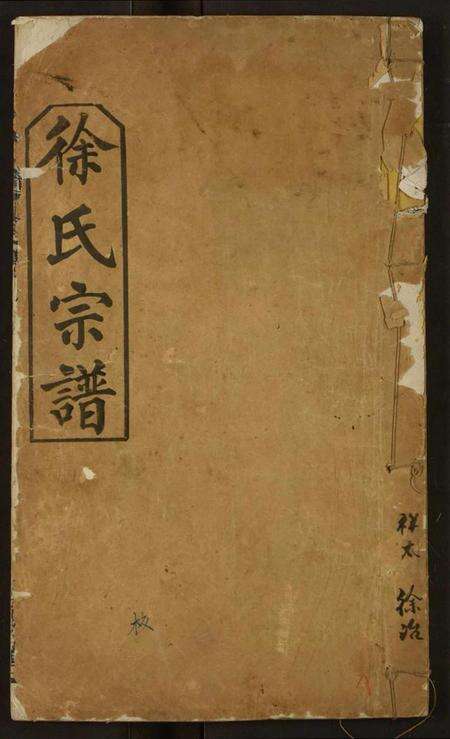 徐氏宗譜
祥太
徐治